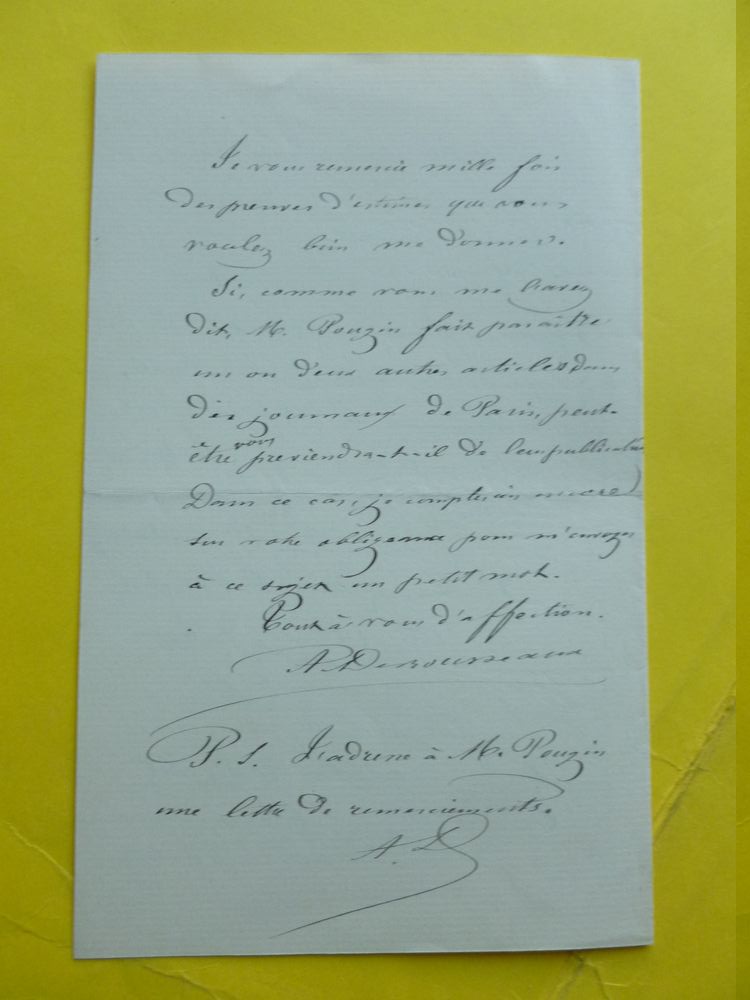 Je vous remercie mille fois
des preuves d'estimes que vous
voulez bien me donner.
Si, comme vous me l'avez
dit, M. Pougin fait paraître
un ou deux autres articles dans
des journaux de Paris, peut-
être vous previendra-t-il de leur publication
Dans ce cas, je compterais encore
sur votre obligeance pour m'envoyer
à ce sujet un petit mot.
Tout à vous d'affection.
A. Desrousseaux
P. S. J'adresse à M. Pougin
une lettre de remerciements.
A. D